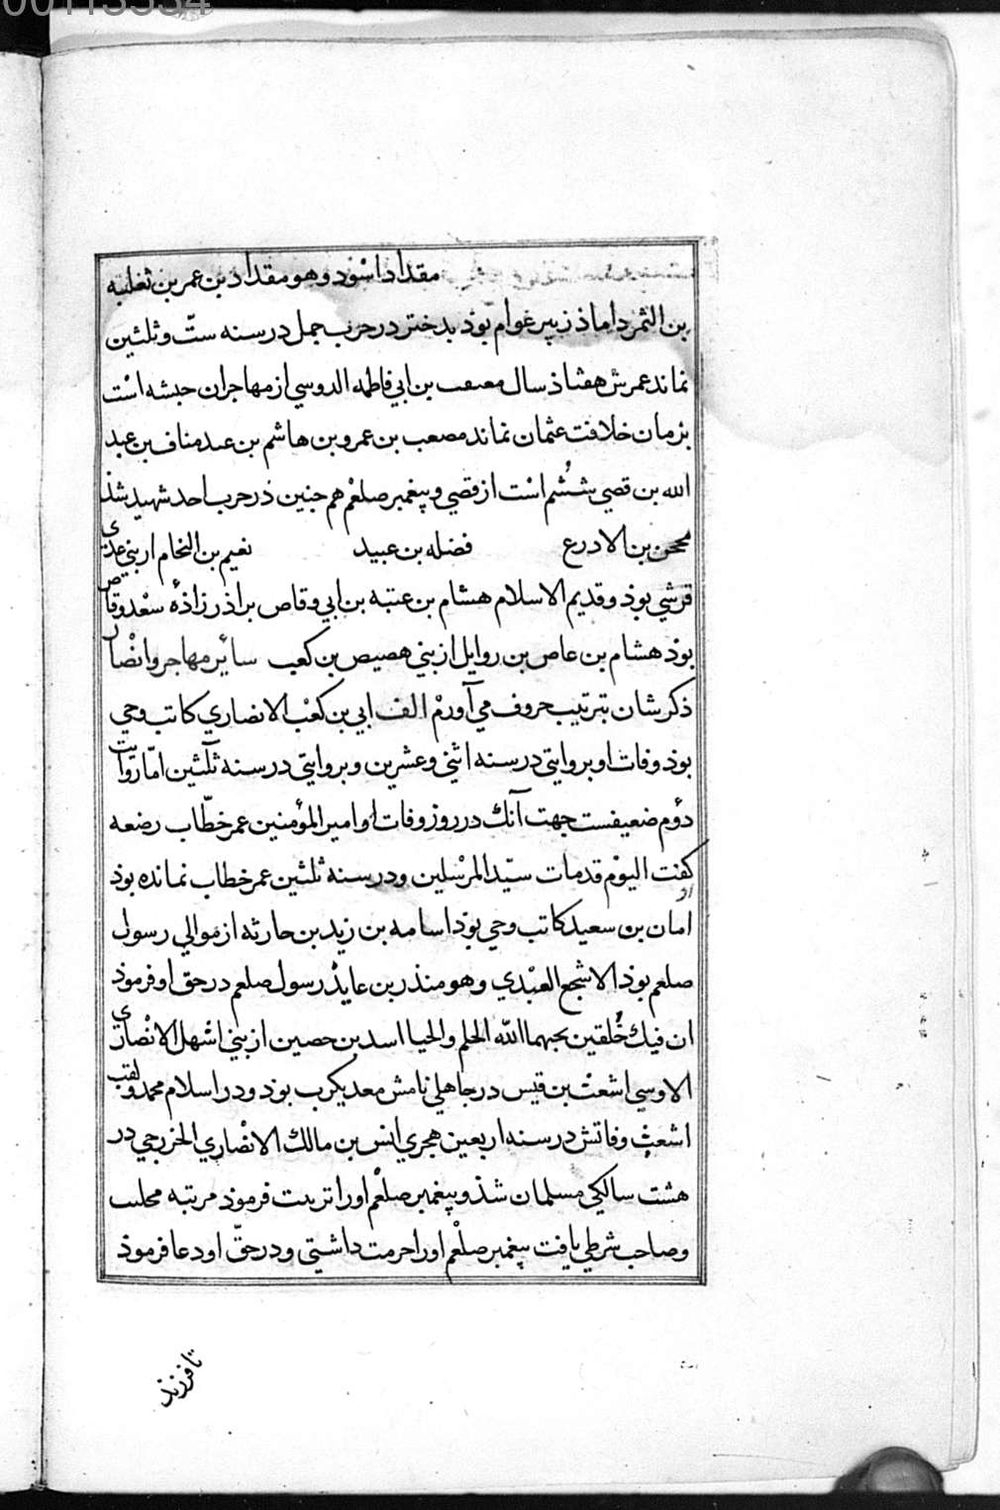 00113534
مقداد اسود و هو مقداد بن عمر بن ثعلبه
بن الثمر داماذ زبیر عوام بوذ بدختر در حرب جمل در سنه ستّ و ثلثین
نماند عمرش هفتاذ سال معیقب بن ابی فاطمه الدوسی از مهاجران حبشه است
بزمان خلافت عثمان نماند مصعب بن عمرو بن هاشم بن عبد مناف بن عبد
الله بن قصی ششُم است از قصی و پیغمبر صلعم هم جنین در حرب احد شهید شذ
محجن بن الادرع فضله بن عبید نعیم بن النحام از بنی عدی
قرشی بوذ و قدیم الاسلام هشام بن عتبه بن ابی وقاص براذرزاذهٔ سعد وقاص
بوذ هشام بن عاص بن روایل از بنی هصیص بن کعب سائر مهاجر و انصار
ذکرشان بترتیب حروف می آورم الف ابی بن کعب الانصاری کاتب وحی
بوذ وفات او بروایتی در سنه اثنی و عشرین و بروایتی در سنه ثلثین امّا روایت
دوم ضعیفست جهت آنك در روز وفات او امیر المؤمنین عمر خطّاب رضعه
کفت الیوم قد مات سیّد المرسلین و در سنه ثلثین عمر خطاب نمانده بوذ
امان بن سعید کاتب وحی بوذ اسامه بن زید بن حارثه از موالی رسول
صلعم بوذ الاشجع العبدی و هو منذر بن عایذ رسول صلعم در حق او فرموذ
ان فیك خُلقین یحبهما الله الحلم و الحیا اسد بن حصین از بنی اشهل الانصاری
الاوسی اشعث بن قیس در جاهلی نامش معدیکرب بوذ و در اسلام محمد و لقب
اشعث وفاتش در سنه اربعین هجری انس بن مالك الانصاری الخزرجی در
هشت سالکی مسلمان شذ و پیغمبر صلعم او را تربیت فرموذ مرتبه محلب
و صاحب شرطی یافت پیغمبر صلعم او را حرمت داشتی و در حقّ او دعا فرموذ
تا فرزند